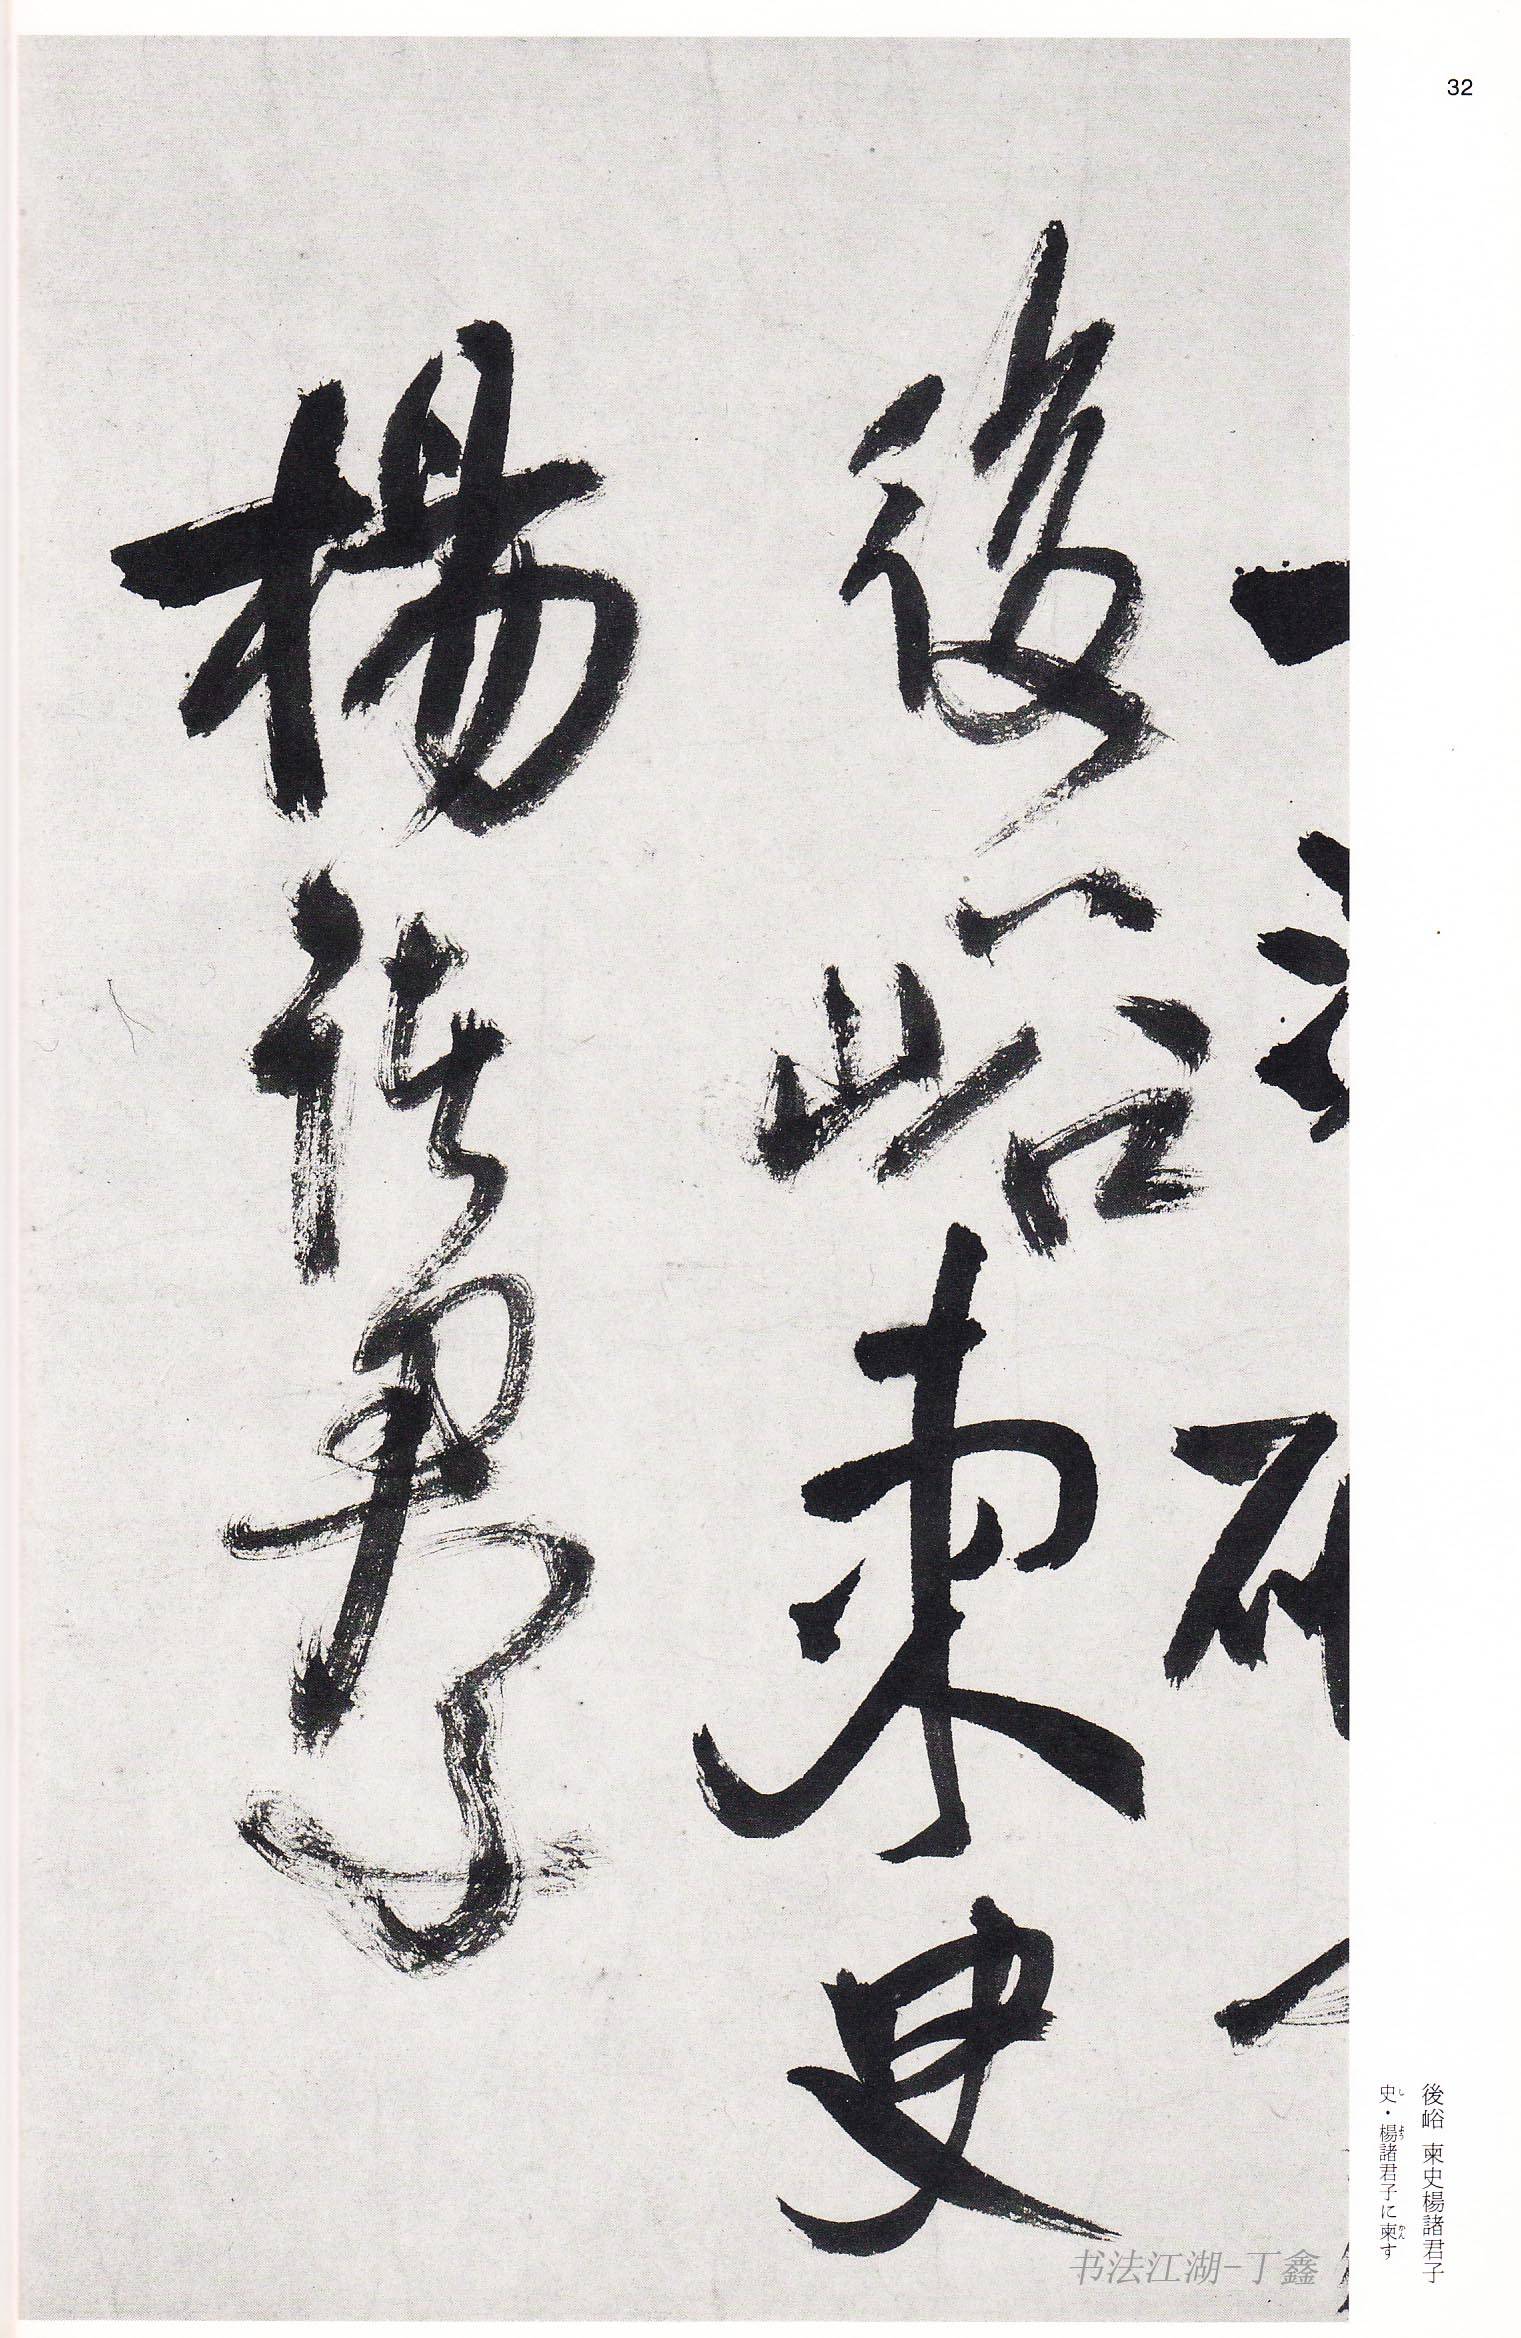 32
後峪柬史
楊諸君子
後峪 柬史楊諸君子
史・楊諸君子に柬す
书法江湖-丁鑫